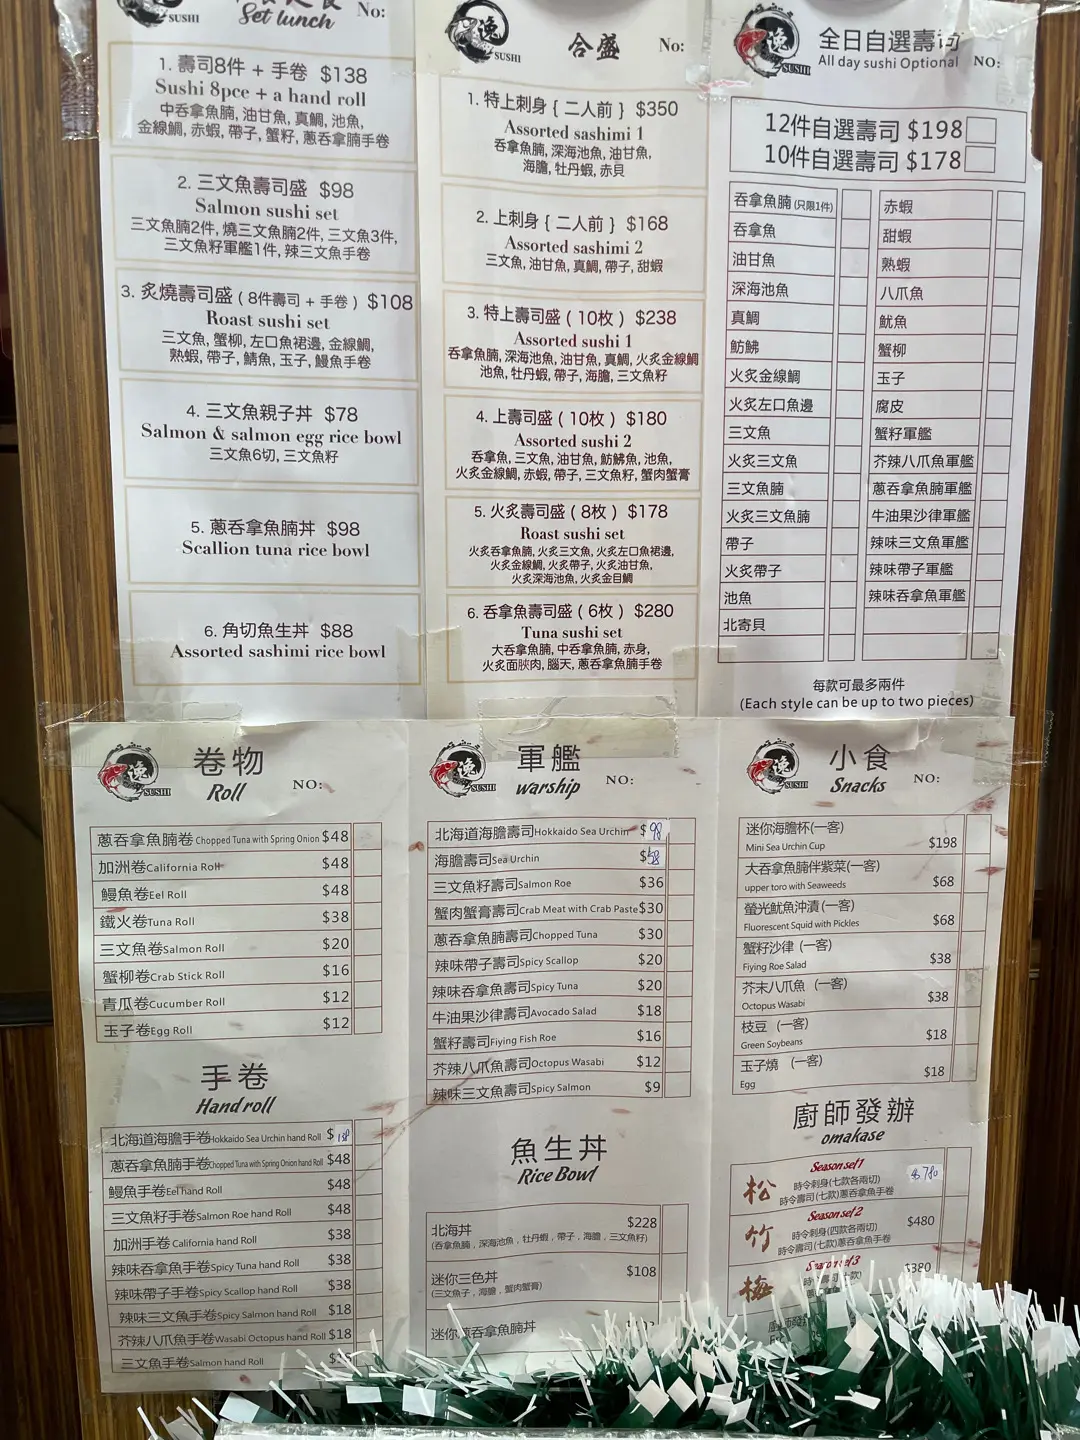 SUSHI
Set lunch
No:
1. 壽司8件 + 手卷 $138
Sushi 8pce + a hand roll
中吞拿魚腩, 油甘魚, 真鯛, 池魚,
金線鯛, 赤蝦, 帶子, 蟹籽, 蔥吞拿腩手卷
2. 三文魚壽司盛 $98
Salmon sushi set
三文魚腩2件, 燒三文魚腩2件, 三文魚3件,
三文魚籽軍艦1件, 辣三文魚手卷
3. 炙燒壽司盛 ( 8件壽司 + 手卷 ) $108
Roast sushi set
三文魚, 蟹柳, 左口魚裙邊, 金線鯛,
熟蝦, 帶子, 鯖魚, 玉子, 鰻魚手卷
4. 三文魚親子丼 $78
Salmon & salmon egg rice bowl
三文魚6切, 三文魚籽
5. 蔥吞拿魚腩丼 $98
Scallion tuna rice bowl
6. 角切魚生丼 $88
Assorted sashimi rice bowl
逸
SUSHI
合盛
No:
1. 特上刺身 { 二人前 } $350
Assorted sashimi 1
吞拿魚腩, 深海池魚, 油甘魚,
海膽, 牡丹蝦, 赤貝
2. 上刺身 { 二人前 } $168
Assorted sashimi 2
三文魚, 油甘魚, 真鯛, 帶子, 甜蝦
3. 特上壽司盛 ( 10枚 ) $238
Assorted sushi 1
吞拿魚腩, 深海池魚, 油甘魚, 真鯛, 火炙金線鯛
池魚, 牡丹蝦, 帶子, 海膽, 三文魚籽
4. 上壽司盛 ( 10枚 ) $180
Assorted sushi 2
吞拿魚, 三文魚, 油甘魚, 魴鮄魚, 池魚,
火炙金線鯛, 赤蝦, 帶子, 三文魚籽, 蟹肉蟹膏
5. 火炙壽司盛 ( 8枚 ) $178
Roast sushi set
火炙吞拿魚腩, 火炙三文魚, 火炙左口魚裙邊,
火炙金線鯛, 火炙帶子, 火炙油甘魚,
火炙深海池魚, 火炙金目鯛
6. 吞拿魚壽司盛 ( 6枚 ) $280
Tuna sushi set
大吞拿魚腩, 中吞拿魚腩, 赤身,
火炙面脥肉, 腦天, 蔥吞拿魚腩手卷
逸
SUSHI
全日自選壽司
All day sushi Optional
NO:
12件自選壽司 $198
10件自選壽司 $178
吞拿魚腩 (只限1件)
吞拿魚
油甘魚
深海池魚
真鯛
魴鮄
火炙金線鯛
火炙左口魚邊
三文魚
火炙三文魚
三文魚腩
火炙三文魚腩
帶子
火炙帶子
池魚
北寄貝
赤蝦
甜蝦
熟蝦
八爪魚
魷魚
蟹柳
玉子
腐皮
蟹籽軍艦
芥辣八爪魚軍艦
蔥吞拿魚腩軍艦
牛油果沙律軍艦
辣味三文魚軍艦
辣味帶子軍艦
辣味吞拿魚軍艦
每款可最多兩件
(Each style can be up to two pieces)
逸
SUSHI
卷物
Roll
NO:
蔥吞拿魚腩卷 Chopped Tuna with Spring Onion $48
加洲卷 California Roll $48
鰻魚卷 Eel Roll $48
鐵火卷 Tuna Roll $38
三文魚卷 Salmon Roll $20
蟹柳卷 Crab Stick Roll $16
青瓜卷 Cucumber Roll $12
玉子卷 Egg Roll $12
手卷
Hand roll
北海道海膽手卷 Hokkaido Sea Urchin hand Roll $ 138
蔥吞拿魚腩手卷 Chopped Tuna with Spring Onion hand Roll $48
鰻魚手卷 Eel hand Roll $48
三文魚籽手卷 Salmon Roe hand Roll $48
加洲手卷 California hand Roll $38
辣味吞拿魚手卷 Spicy Tuna hand Roll $38
辣味帶子手卷 Spicy Scallop hand Roll $38
辣味三文魚手卷 Spicy Salmon hand Roll $18
芥辣八爪魚手卷 Wasabi Octopus hand Roll $18
三文魚手卷 Salmon hand Roll
逸
SUSHI
軍艦
warship
NO:
北海道海膽壽司 Hokkaido Sea Urchin $ 98
海膽壽司 Sea Urchin $58
三文魚籽壽司 Salmon Roe $36
蟹肉蟹膏壽司 Crab Meat with Crab Paste $30
蔥吞拿魚腩壽司 Chopped Tuna $30
辣味帶子壽司 Spicy Scallop $20
辣味吞拿魚壽司 Spicy Tuna $20
牛油果沙律壽司 Avocado Salad $18
蟹籽壽司 Fiying Fish Roe $16
芥辣八爪魚壽司 Octopus Wasabi $12
辣味三文魚壽司 Spicy Salmon $9
魚生丼
Rice Bowl
北海丼 $228
(吞拿魚腩 , 深海池魚 , 牡丹蝦 , 帶子 , 海膽 , 三文魚籽)
迷你三色丼 $108
(三文魚子 , 海膽 , 蟹肉蟹膏)
迷你蔥吞拿魚腩丼
逸
SUSHI
小食
Snacks
NO:
迷你海膽杯(一客)
Mini Sea Urchin Cup $198
大吞拿魚腩伴紫菜(一客)
upper toro with Seaweeds $68
螢光魷魚沖漬(一客)
Fluorescent Squid with Pickles $68
蟹籽沙律 (一客)
Fiying Roe Salad $38
芥末八爪魚 (一客)
Octopus Wasabi $38
枝豆 (一客)
Green Soybeans $18
玉子燒 (一客)
Egg $18
廚師發辦
omakase
松
Season set 1
時令刺身(七款各兩切)
時令壽司(七款)蔥吞拿魚手卷
$780
竹
Season set 2
時令刺身(四款各兩切)
時令壽司(七款)蔥吞拿魚手卷
$480
梅
Season set 3
$380